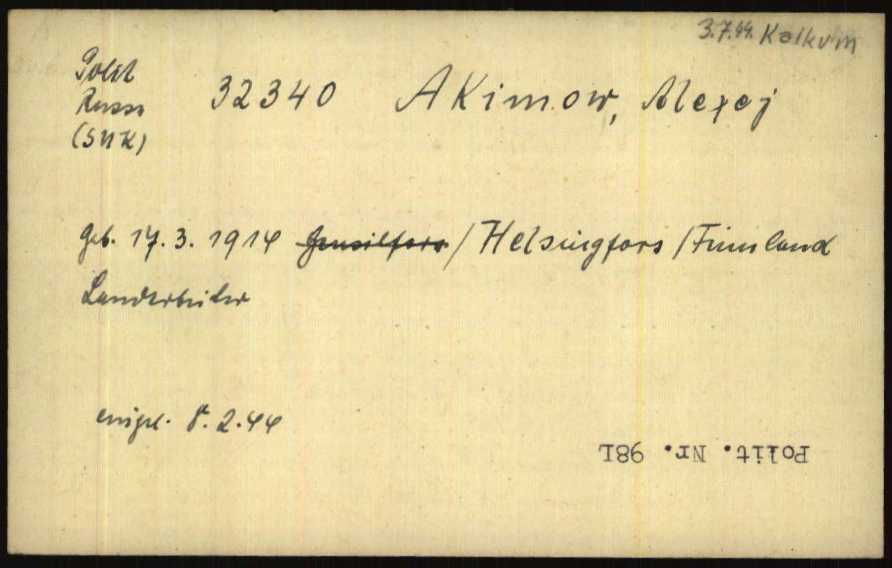 3.7.44. Kalkum
Polit
Russe
(SUK)
32340 Akimow, Alexej
geb. 17.3.1914 / Helsingfors / Finnland
Landarbeiter
eingel. 8.2.44
Polit. Nr. 981